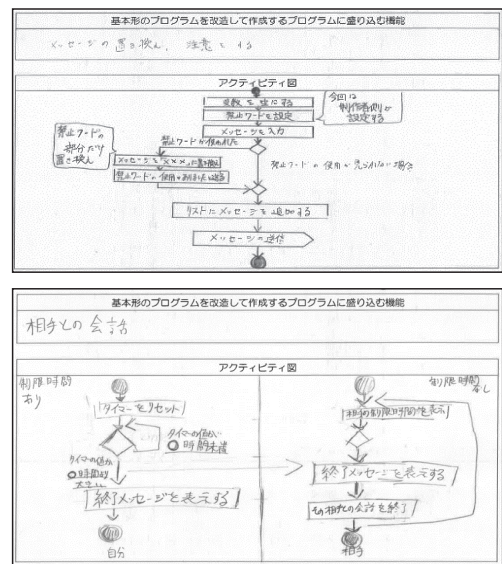 基本形のプログラムを改造して作成するプログラムに盛り込む機能
メッセージの置き換え、注意をする
アクティビティ図
変数を空にする
禁止ワードを設定
今回は
制作者側が
設定する
メッセージを入力
禁止ワードの
部分だけ
置き換え
禁止ワードが使用された
禁止ワードの使用が見られない場合
メッセージを×××に置き換え
リストにメッセージを追加する
メッセージの送信
基本形のプログラムを改造して作成するプログラムに盛り込む機能
相手との会話
アクティビティ図
制限時間
あり
タイマーをリセット
タイマーの値が
○時間未満
タイマーの値が
○時間より
大きい
終了メッセージを表示する
自分
制限時間
なし
相手の制限時間を表示
終了メッセージを表示する
その相手との会話を終了
相手